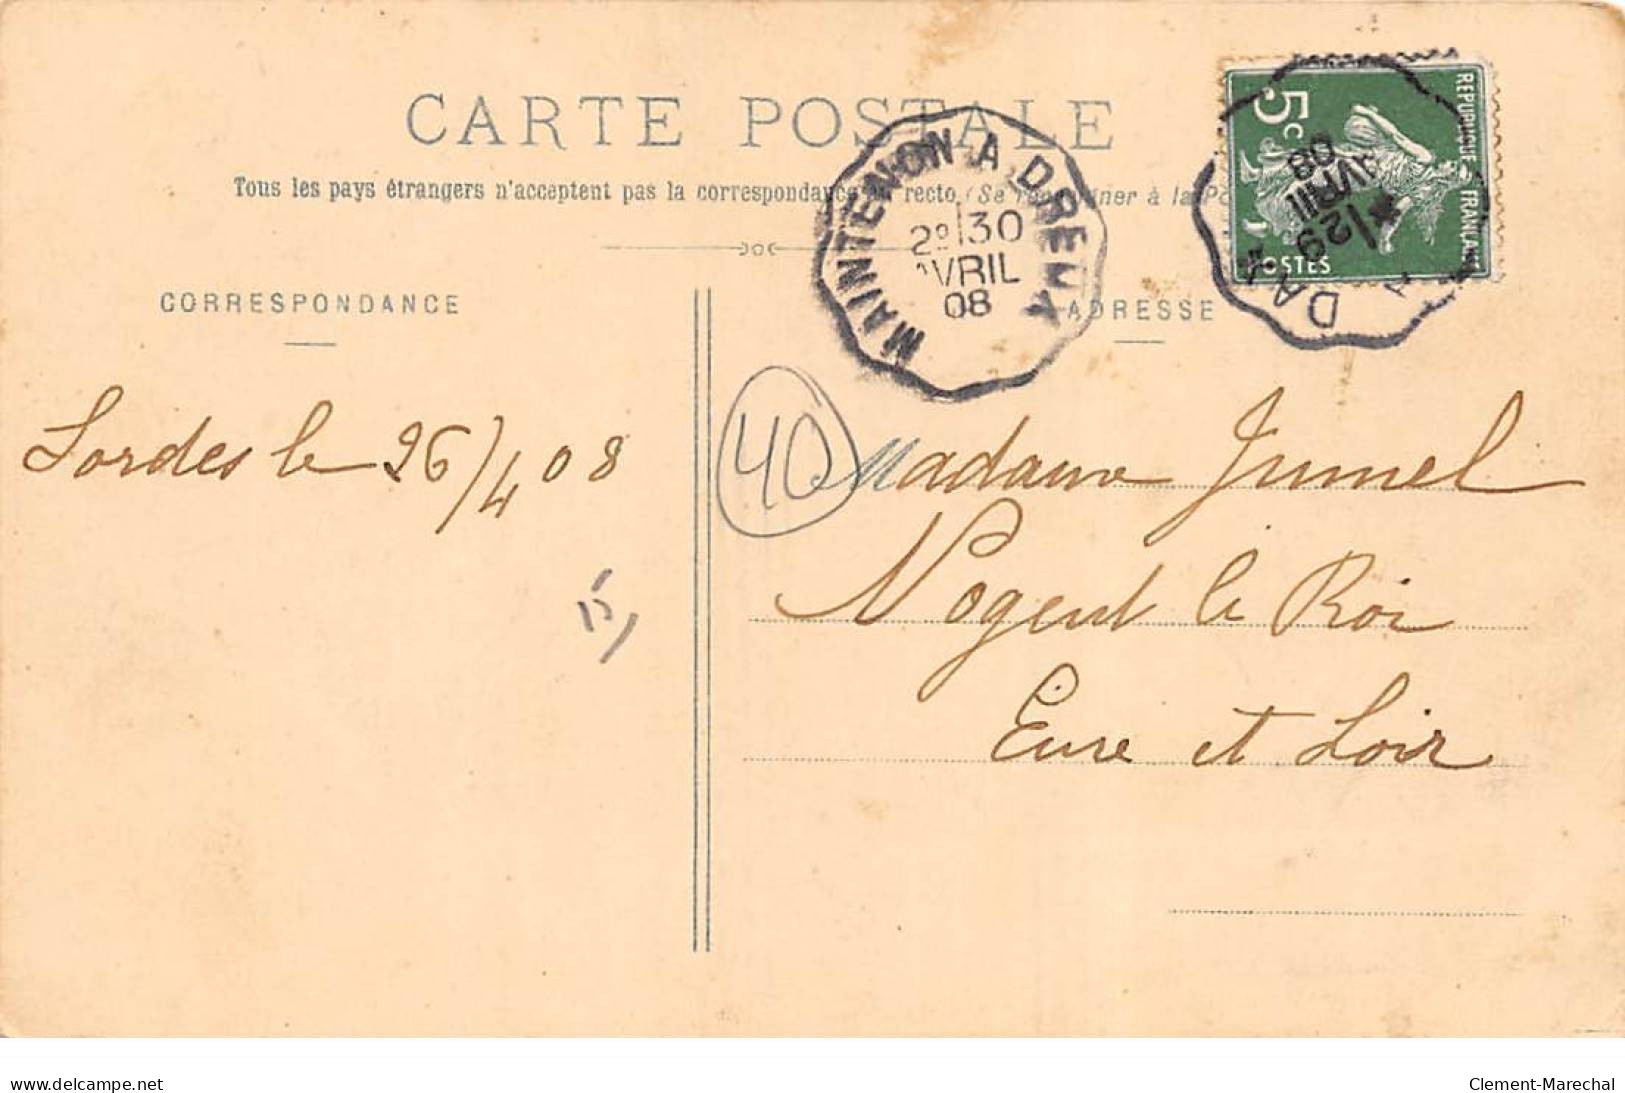 CARTE POSTALE
Tous les pays étrangers n'acceptent pas la correspondance au recto. (Se renseigner à la Po
CORRESPONDANCE
ADRESSE
MAINTENON A DREUX
2º 30
AVRIL
08
REPUBLIQUE FRANÇAISE
5c
POSTES
DAX A
29
AVRIL
08
Sordes le 26/4 08
40
15
Madame Jumel
Nogent le Roi
Eure et Loir
delcampe.net
Clement-Marechal